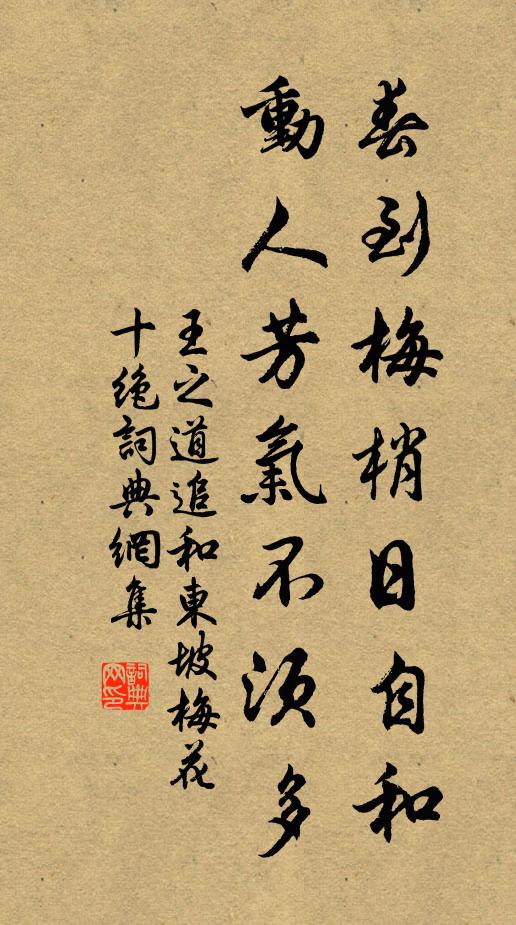 春到梅梢日自和
動人芳氣不須多
王之道追和東坡梅花
十絶詞典網集
詞典
网印